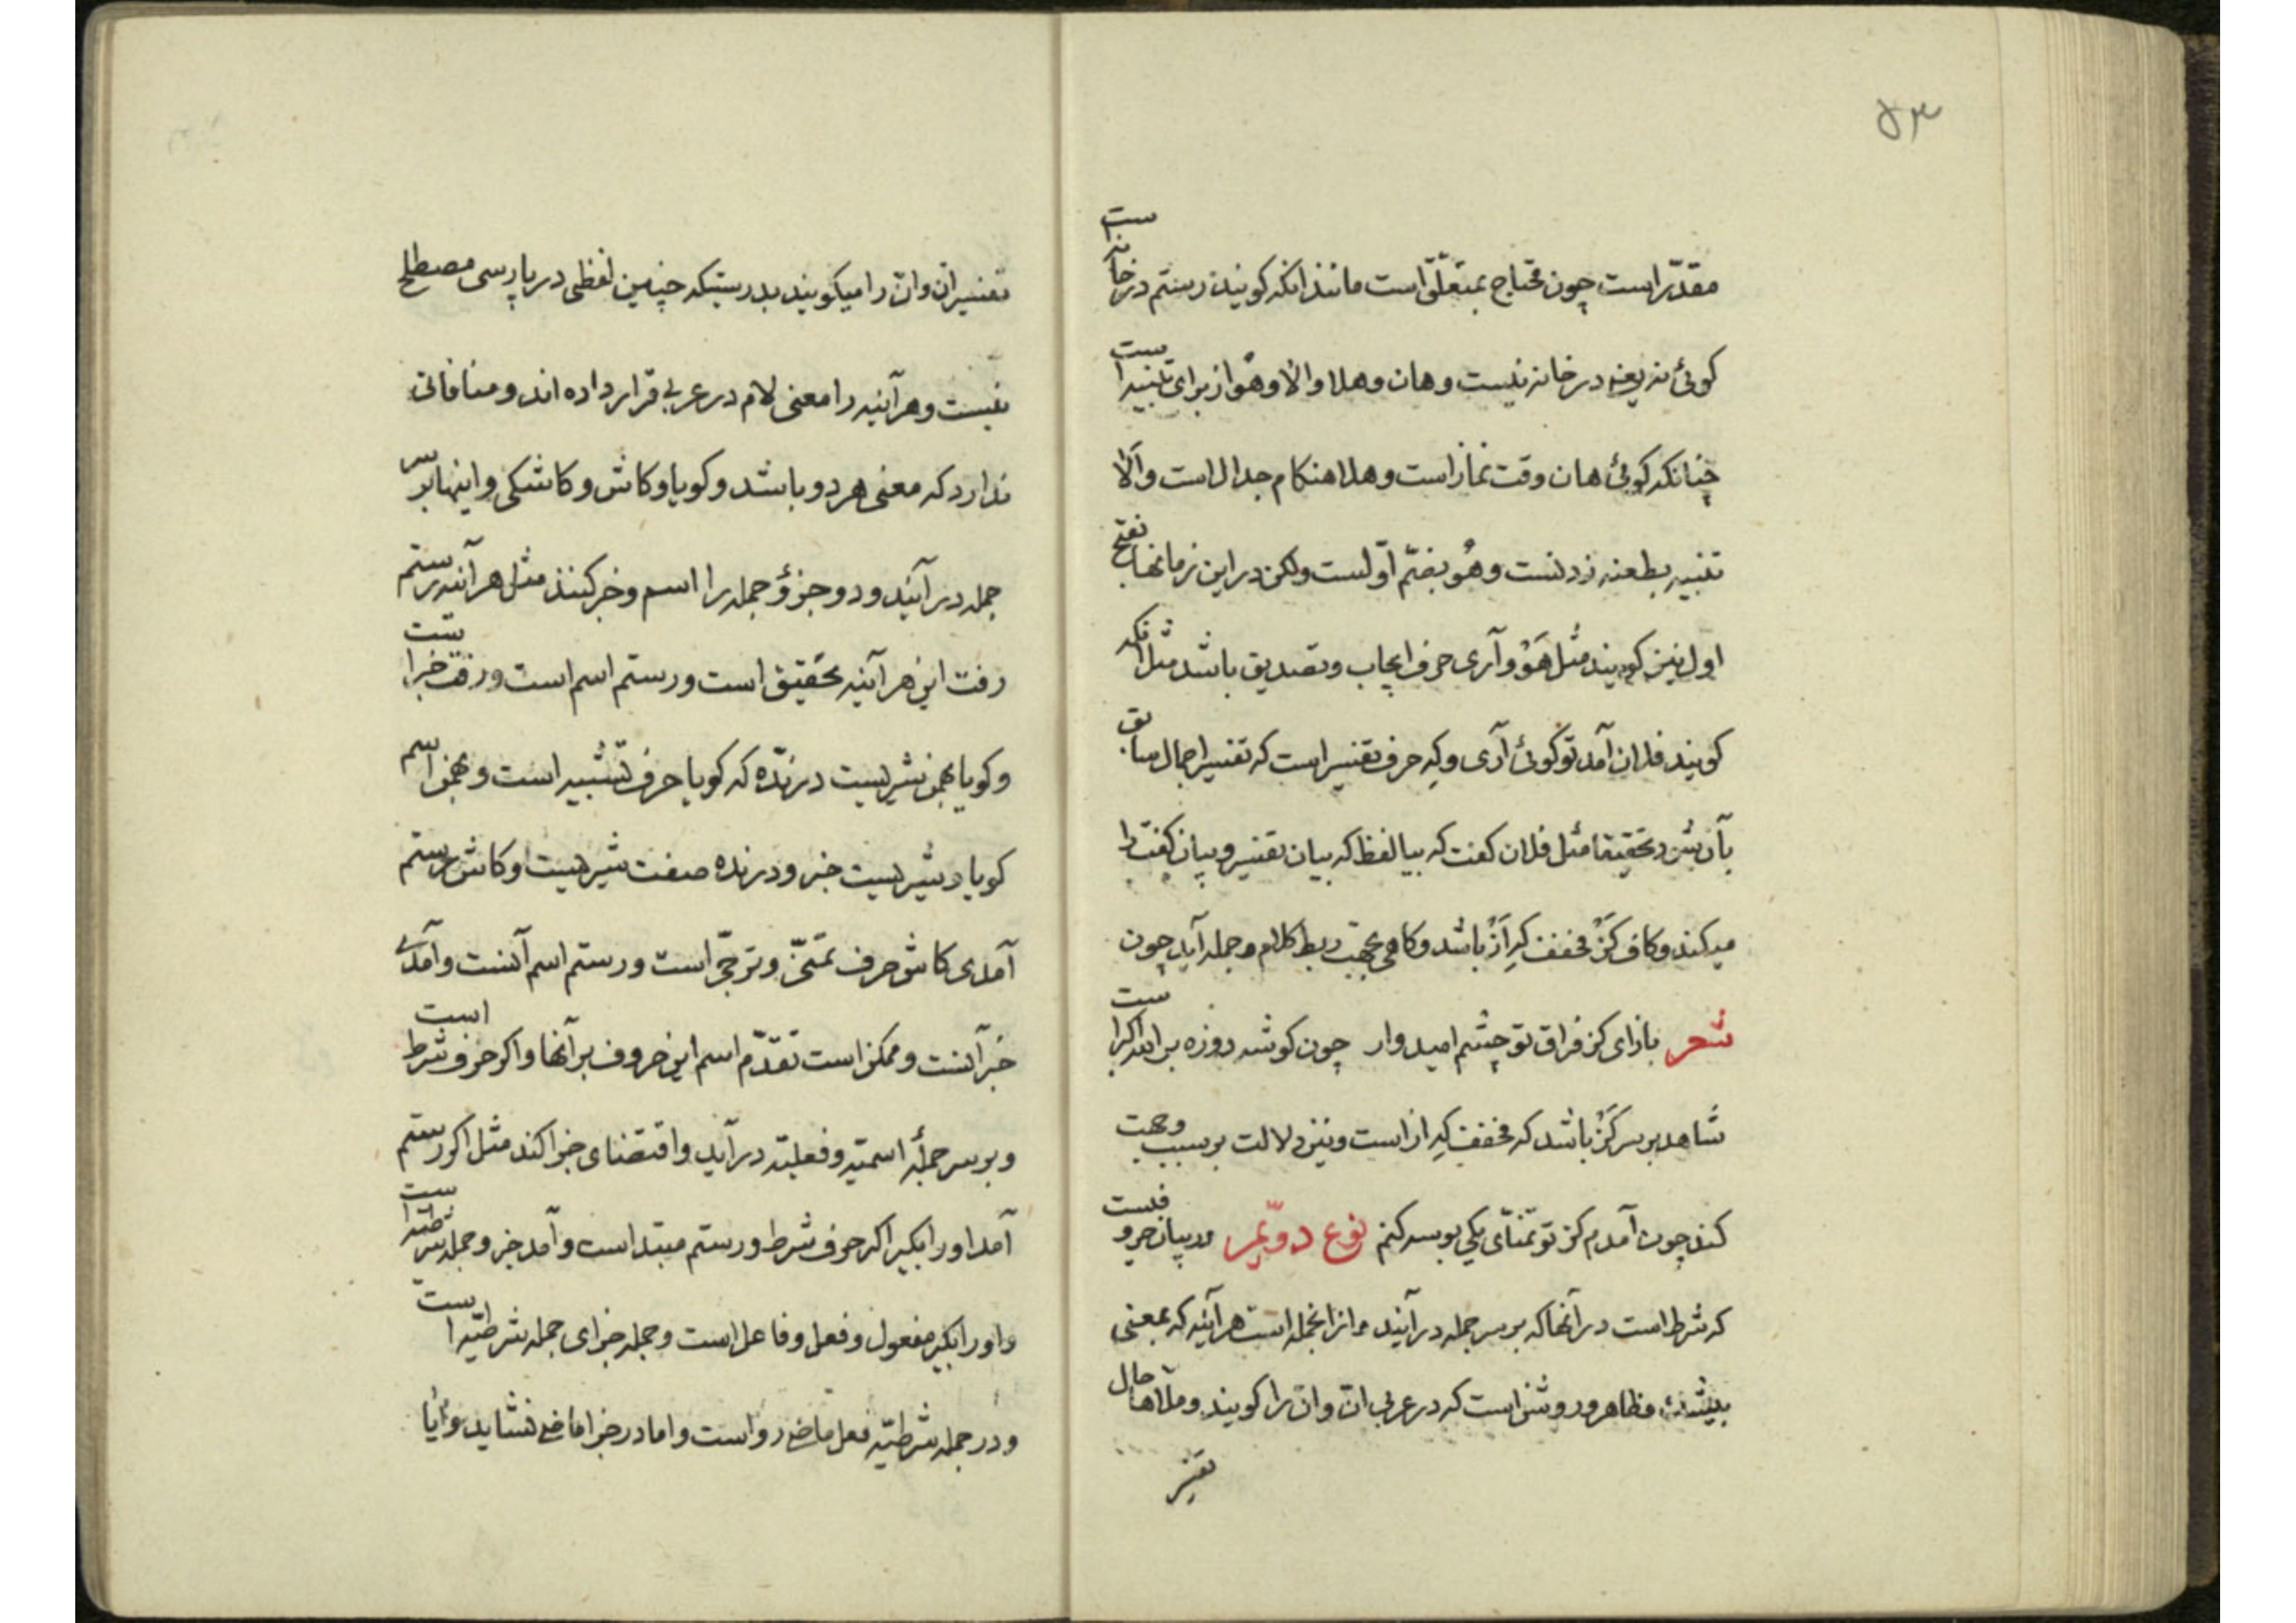 ۵۳
مقدّر است چون محتاج بمتعلّق است مانند انکه کویند رستم در خانه است
کوئی نه یعنی در خانه نیست وهان وهلا والا وهو از برای تنبیه است
چنانکه کوئی هان وقت نماز است وهلا هنکام جدال است والّا
تنبیه بطعنه زدنست وهُو بضمّ اوّلست ولکن در این زمانها بفتح
اول نیز کویند مثل هَوْ وآری حرف ایجاب وتصدیق باشد مثل انکه
کویند فلان آمد تو کوئی آری وکِه حرف تفسیر است که تفسیر اجمال سابق
بآن شود تحقیقا مثل فلان کفت که بیا لفظ که بیان تفسیر وبیان کفت را
میکند وکاف کَزْ مخفف کِه اَزْ باشد وکاهی بجهت ربط کلام وجمله آید چون
شعر بازای کز فراق تو چشم امیدوار چون کوش روزه بر الله اکبر است
شاهد بر سر کَزْ باشد که مخفف کِه از است ونیز دلالت بر سبب وجهت
کند چون آمدم کز تو تمنّای یکی بوسه کنم نوع دوّیم در بیان حروفیست
که شرط است در آنها که بر سر جمله در آیند واز انجمله است هر آینه که بمعنی
بیشک وظاهر وروشن است که در عربی انّ وانّ را کویند وملّاها حال
تفسیر
تفسیر انّ وانّ را میکویند بدرستیکه چنین لفظی در پارسی مصطلح
نیست وهر آینه را معنی لام در عربی قرار داده اند ومنافاتی
ندارد که معنی هر دو باشد وکویا وکاش وکاشکی واینها بر سر
جمله در آیند ودو جزؤ جمله را اسم وخبر کنند مثل هر آینه رستم
رفت این هر آینه تحقیق است ورستم اسم است ورفت خبر است
وکویا بهمن شیریست درنده که کویا حرف تشبیه است وبهمن اسم
کویا وشیریست خبر ودرنده صفت شیریست وکاش رستم
آمدی کاش حرف تمنّی وترجّی است ورستم اسم آنست وآمدی
خبر آنست وممکن است تقدّم اسم این حروف بر آنها واکر حرف شرط است
وبر سر جملهٔ اسمیّه وفعلیّه در آید واقتضای جزا کند مثل اکر رستم
آمد او را بکیر اکر حرف شرط ورستم مبتداست وآمد خبر وجمله شرطیّه است
واو را بکیر مفعول وفعل وفاعل است وجمله جزای جمله شرطیّه است
ودر جمله شرطیّه فعل ماضی رواست واما در جزا ماضی نشاید وایا